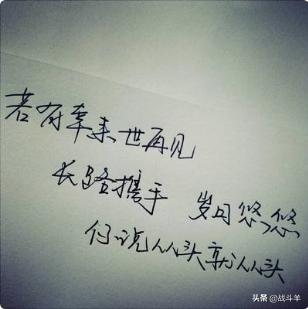 若有幸来世再见
长路携手 岁月悠悠
你说从头就从头
头条 @战斗羊